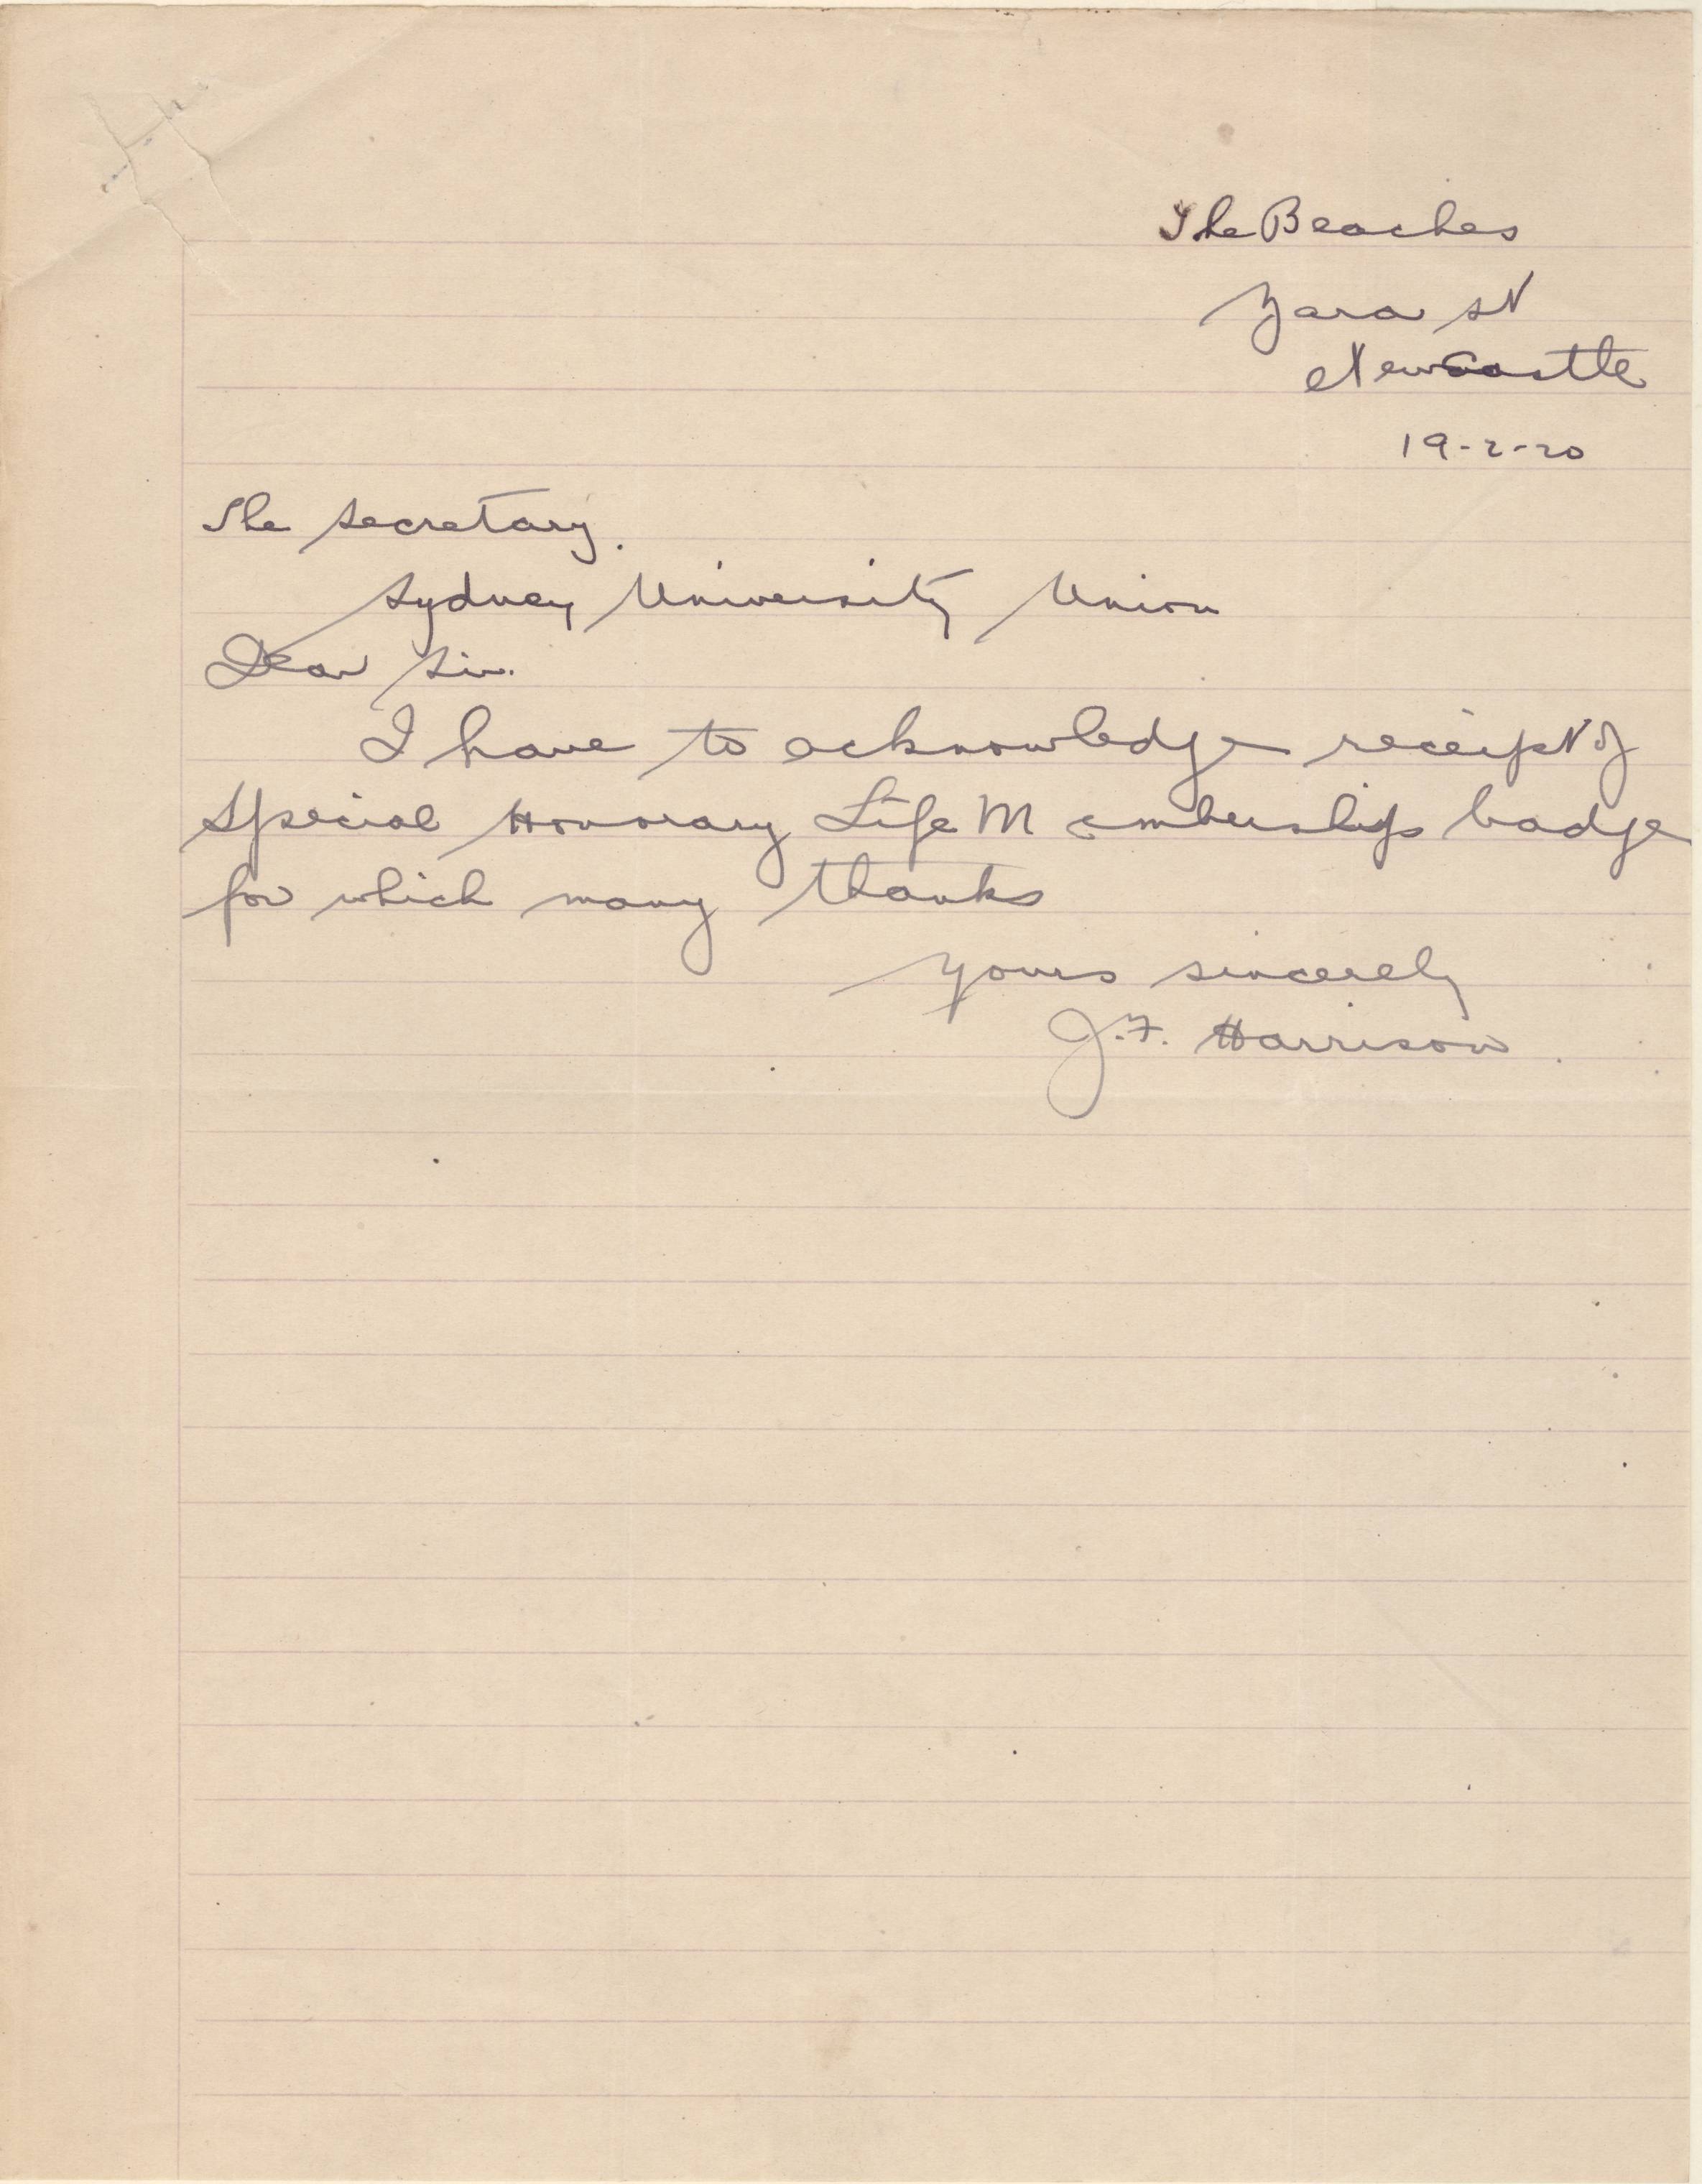 The Beaches
Zara St
Newcastle
19-2-20
The Secretary.
Sydney University Union
Dear Sir.
I have to acknowledge receipt of
Special Honorary Life Membership badge
for which many thanks
Yours sincerely
J.F. Harrison.